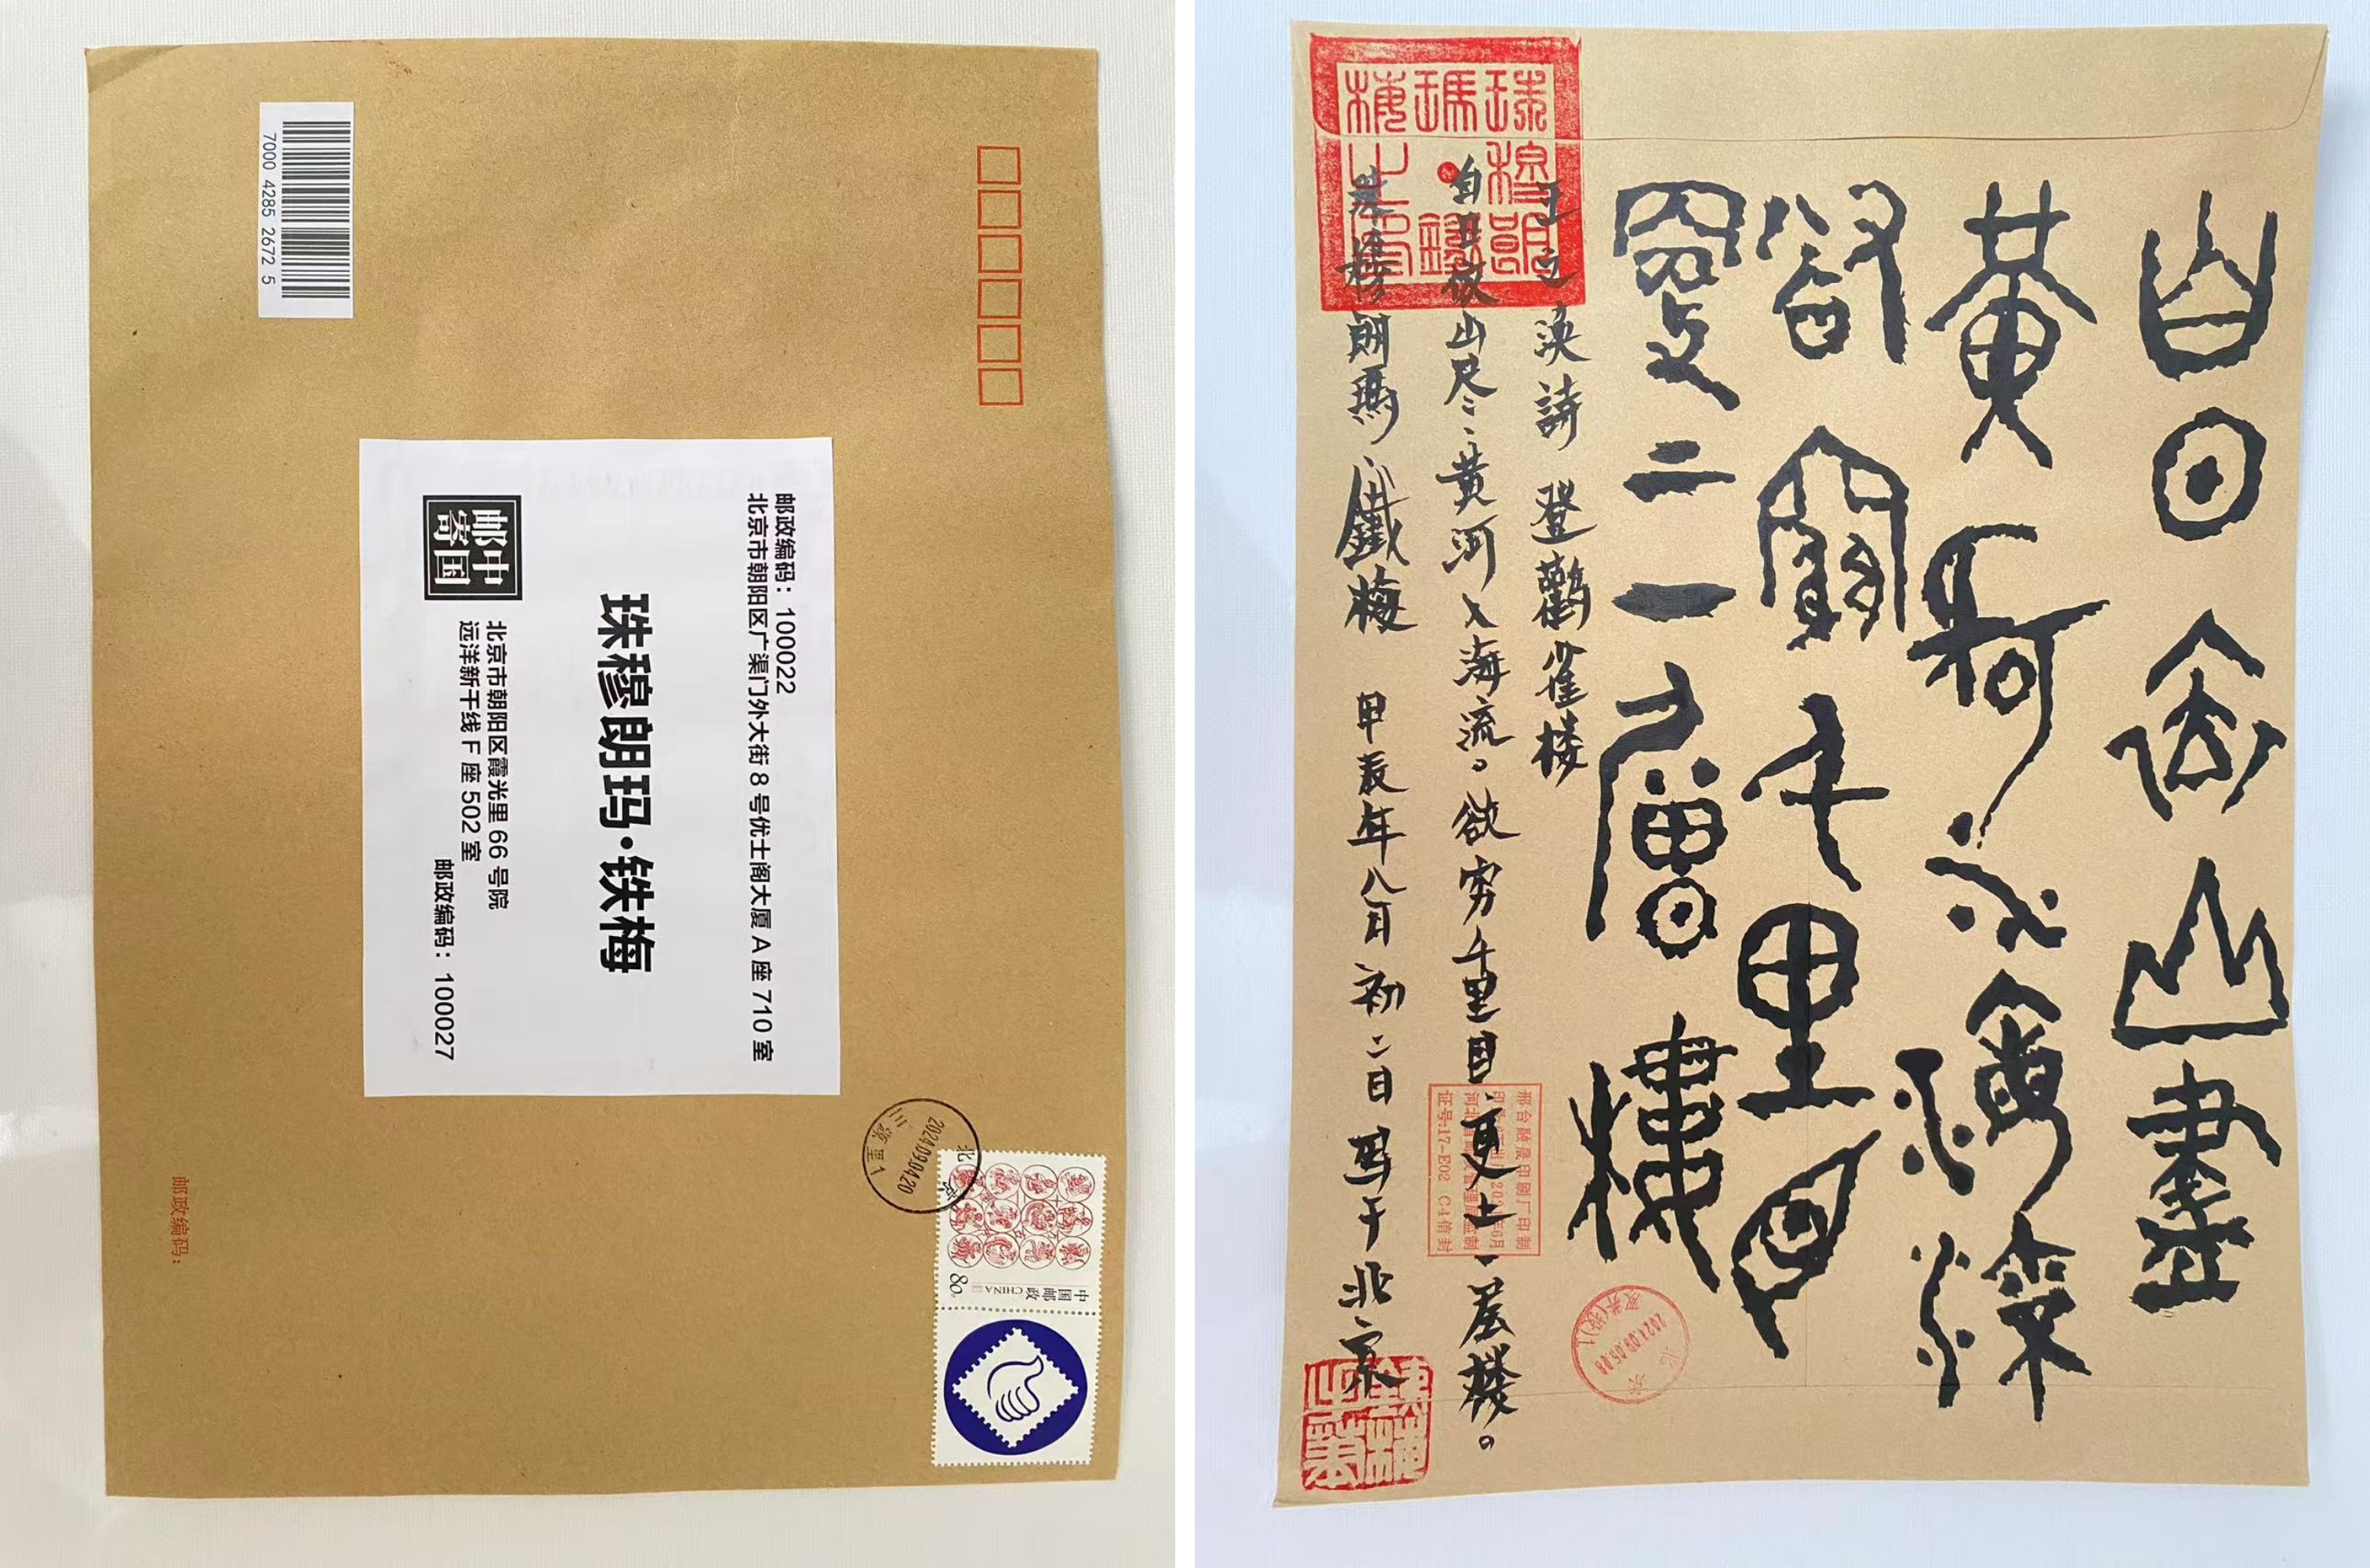 7000 4285 2672 5
邮政编码：100022
北京市朝阳区广渠门外大街 8 号优士阁大厦 A 座 710 室
珠穆朗玛·铁梅
中国
邮寄
北京市朝阳区霞光里 66 号院
远洋新干线 F 座 502 室
邮政编码：100027
北京
2024.09.04.20
三源里1
中国邮政 CHINA
80
邮政编码：
白日依山盡
黄河入海流
欲窮千里目
更上一層樓
王之涣詩 登鸛雀樓
白日依山尽、黄河入海流。欲穷千里目、更上一层樓。
珠穆朗瑪·鐵梅 甲辰年八月初二日写于北京
珠穆朗瑪鐵梅之印
邢台融晟印刷厂印制
证号:17-E02 C4信封
北京
2024.09.05.08